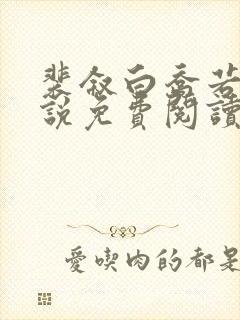 裴叙白乔若
說免費閱讀
愛喫肉的都是